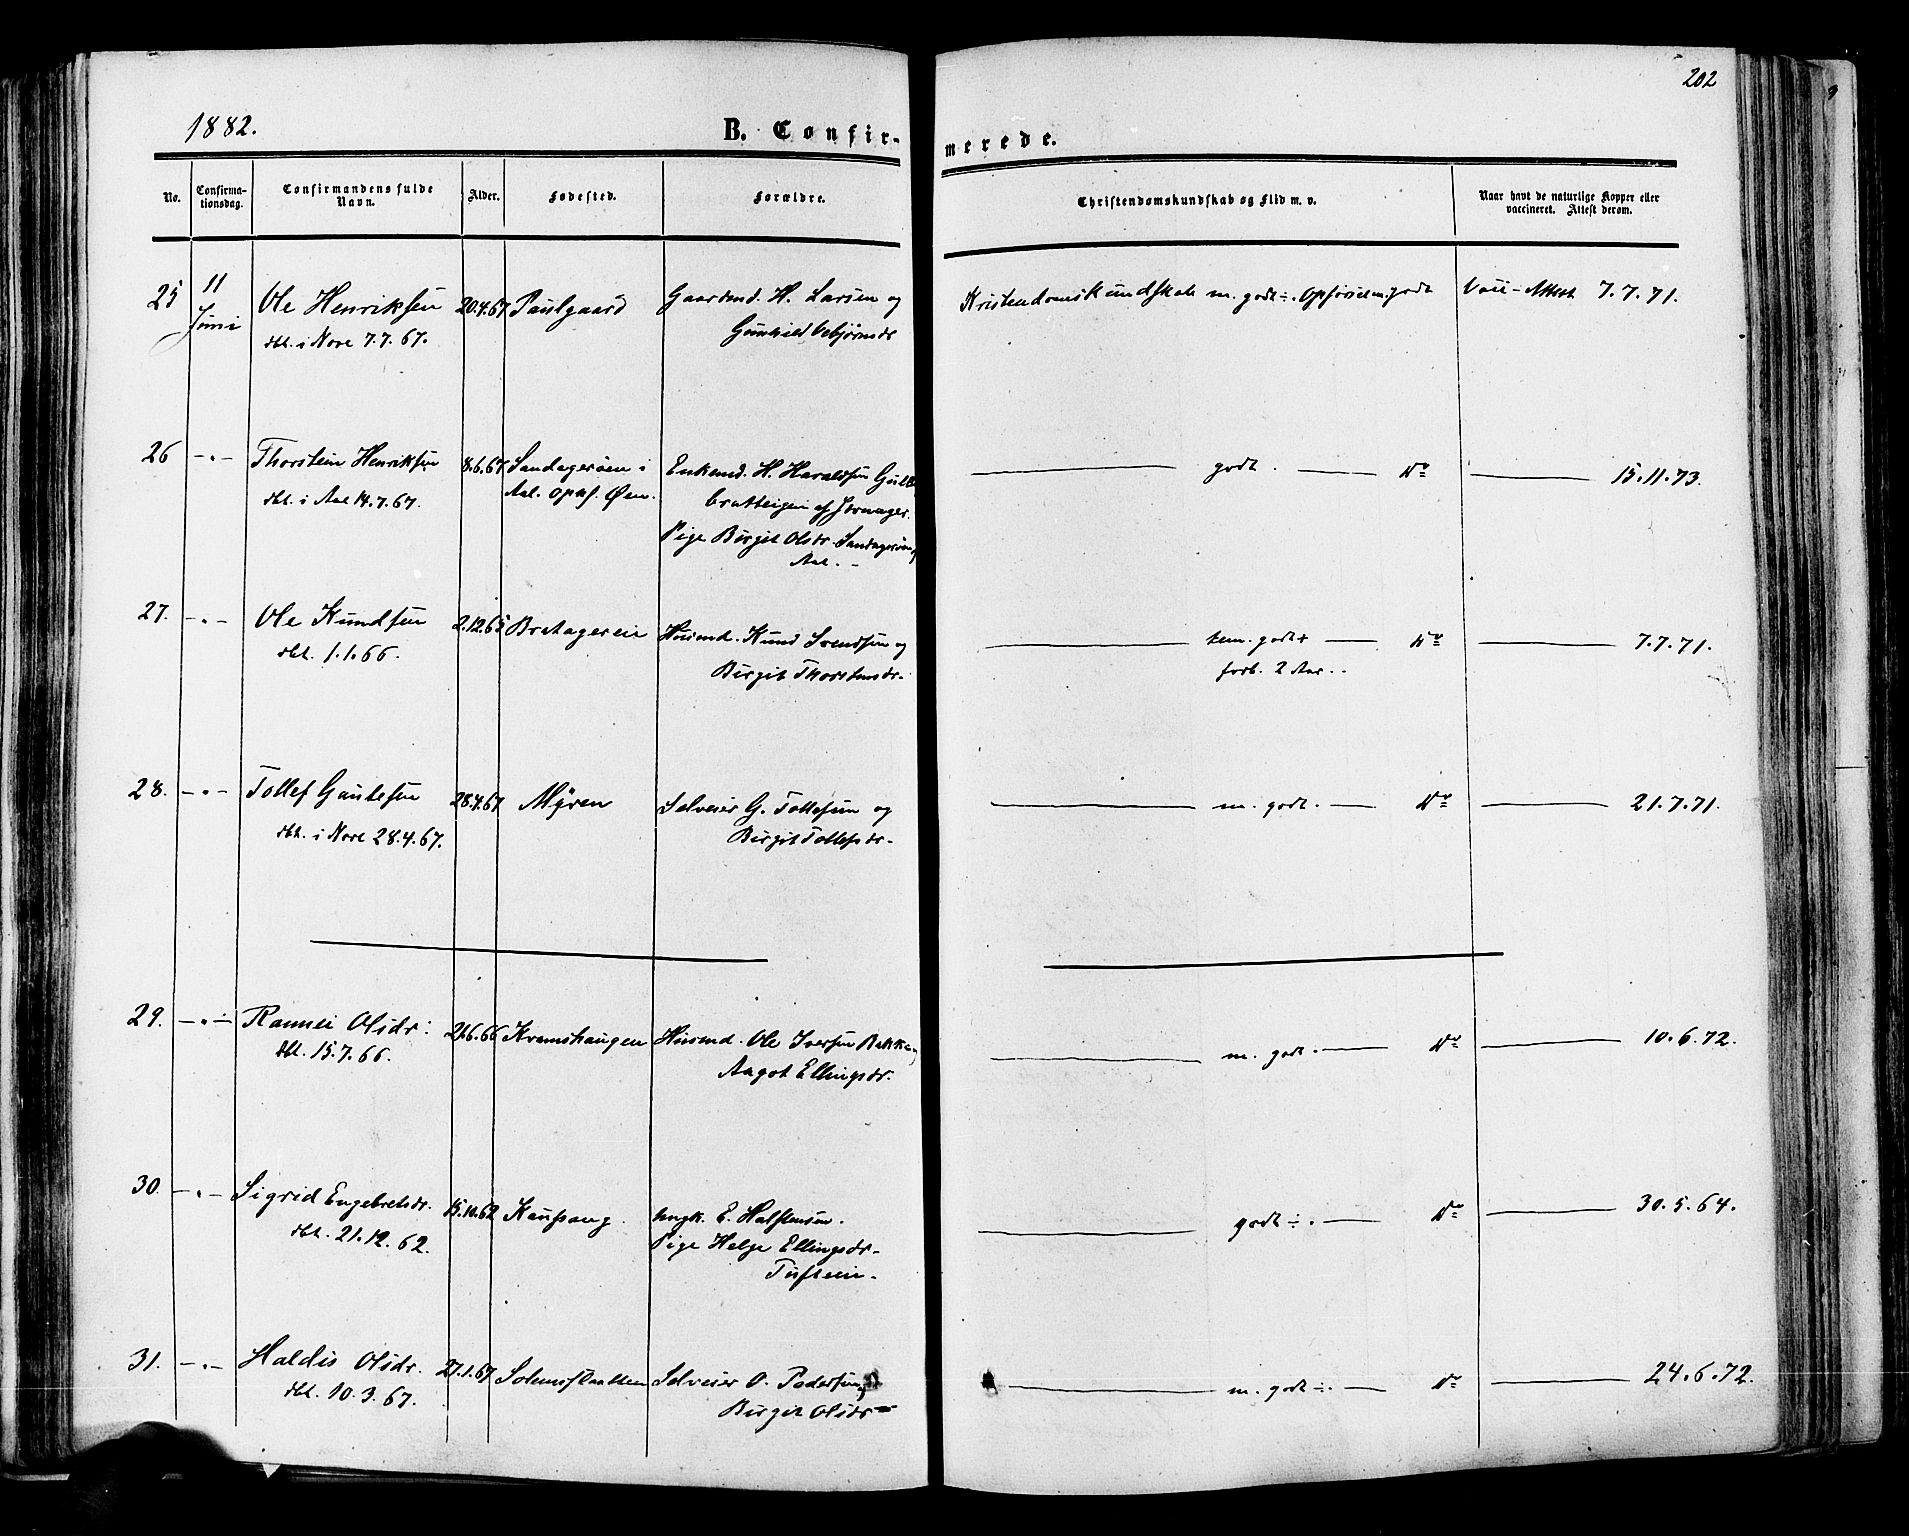 202
1882.
B. Confirmerede.
No.
Confirmationsdag.
Confirmandens fulde Navn.
Alder.
Fødested.
Forældre.
Christendomskundskab og Flid m. v.
Naar havt de naturlige Kopper eller vaccineret. Attest derom.
25 11 Juni Ole Henriksen 20.4.67 Paulgaard Gaardmd. H. Larsen og Kristendomskundskab m. godt ÷. Opførsel m. godt Vacc-Attest 7.7.71.
dbt. i Nore 7.7.67. Gunhild Vebjørnsdr
26 -"- Thorstein Henriksen 8.6.67 Sandagerøen i Enkemd. H. Haraldsen godt. Do 15.11.73.
dbt. i Aal 14.7.67. Aal. opaf. Øen. bratteigen af
Pige Birgit Olsdr. Sandagerøen,
Aal. -
27. -"- Ole Knudsen 2.12.65 Bratagereie Husmd. Knud Svendsen og tem. godt + Do 7.7.71.
dbt. 1.1.66. Birgit Thorstensdr. forb. 2 Aar..
28. -"- Tollef Gautesen 28.4.67 Myren Selveier G. Tollefsen og m. godt. Do 21.7.71.
dbt. i Nore 28.4.67. Birgit Tollefsdr.
29. -"- Rannei Olsdr: 21.6.66 Kramshaugen Husmd. Ole Iversen Bakke, m. godt. Do 10.6.72.
dbt. 15.7.66. Aagot Ellingsdr.
30. -"- Sigrid Engebretsdr. 15.10.62 Kaupang. Ungk. E. Halstensen. godt ÷. Do 30.5.64.
dbt. 21.12.62. Pige Helge Ellingsdr.
Tufteeie.
31. -"- Haldis Olsdr. 27.1.67 Solemslaatten Selveier O. Pedersen, m. godt ÷. Do 24.6.72.
dbt. 10.3.67. Birgit Olsdr